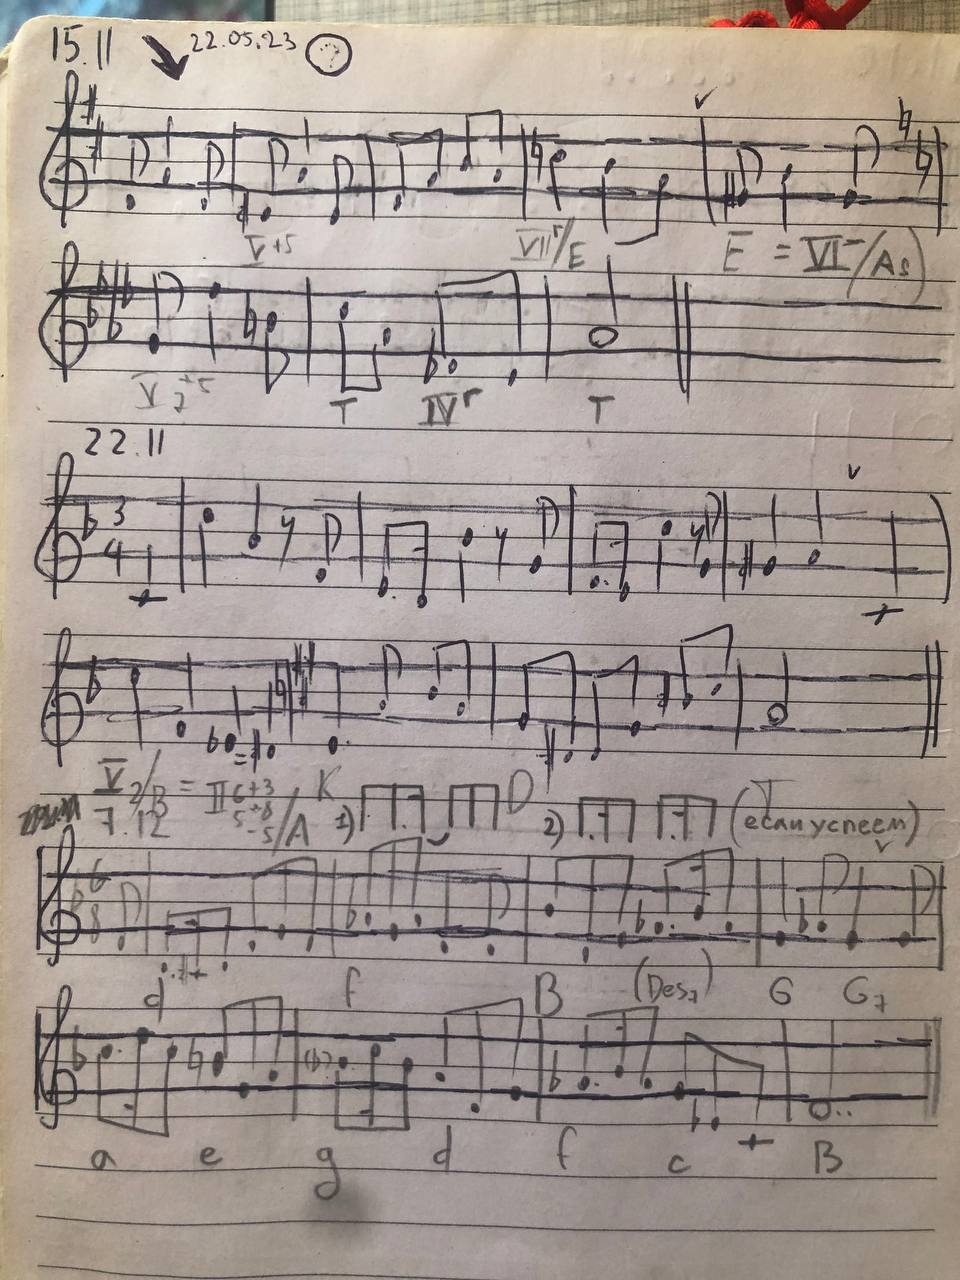 15.11 22.05.23 ?
V+5 VIIr/E E = VI-/As)
V7+5 T IVr T
22.11
3
4
V2/B = II6+3 5+8 -5/A K 1) D 2) T
7.12 (если успеем)
6
8
d f B (Des7) G G7
a e g d f c B